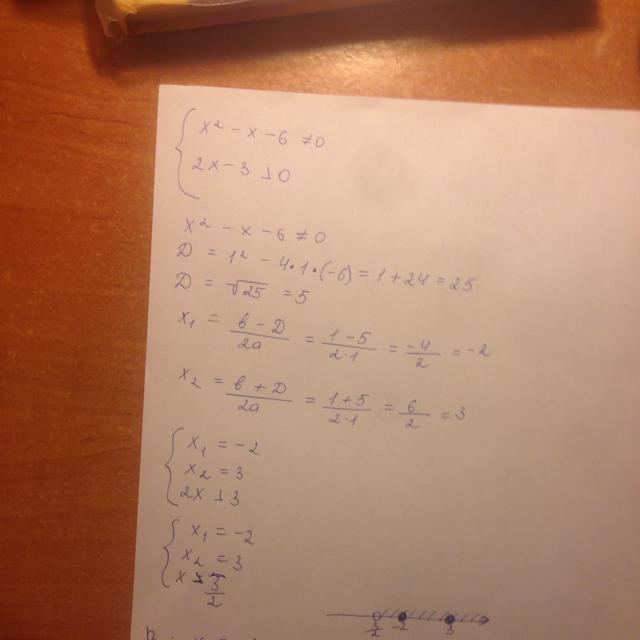 x² - x - 6 ≠ 0
2x - 3 > 0
x² - x - 6 ≠ 0
D = 1² - 4·1·(-6) = 1 + 24 = 25
D = √25 = 5
x₁ = (b - D)/2a = (1 - 5)/(2·1) = -4/2 = -2
x₂ = (b + D)/2a = (1 + 5)/(2·1) = 6/2 = 3
x₁ = -2
x₂ = 3
2x > 3
x₁ = -2
x₂ = 3
x > 3/2
3/2 -2 3